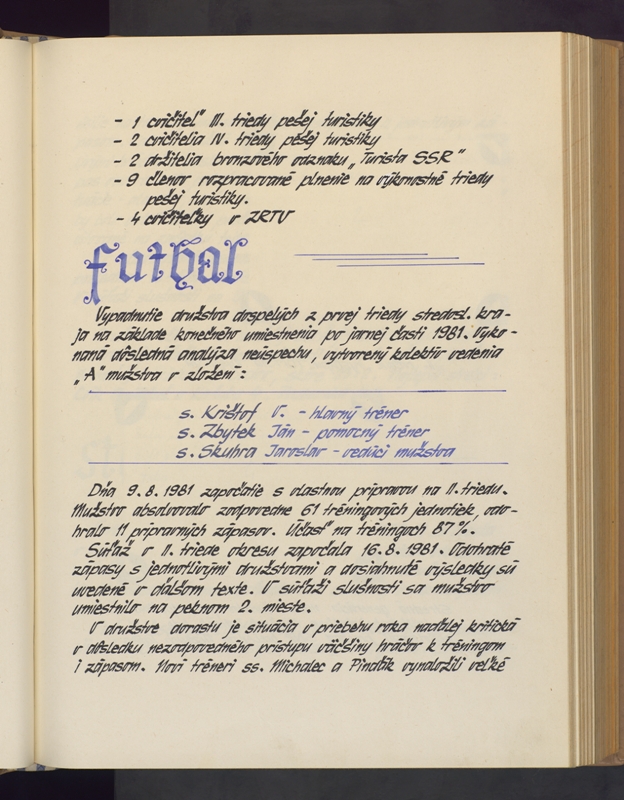 - 1 cvičiteľ III. triedy pešej turistiky
- 2 cvičitelia IV. triedy pešej turistiky
- 2 držitelia bronzového odznaku „Turista SSR"
- 9 členov rozpracované plnenie na výkonostné triedy
pešej turistiky.
- 4 cvičiteľky v ZRTV
futbal
Vypadnutie družstva dospelých z prvej triedy stredosl. kra-
ja na základe konečného umiestnenia po jarnej časti 1981. Vyko-
naná dôsledná analýza neúspechu, vytvorený kolektív vedenia
„A" mužstva v zložení:
s. Krištof V. - hlavný tréner
s. Zbytek Ján - pomocný tréner
s. Skuhra Jaroslav - vedúci mužstva
Dňa 9.8.1981 započatie s vlastnou prípravou na II. triedu.
Mužstvo absolvovalo zodpovedne 61 tréningových jednotiek, odo-
hralo 11 prípravných zápasov. Účasť na tréningoch 87%.
Súťaž v II. triede okresu započala 16.8.1981. Odohraté
zápasy s jednotlivými družstvami a dosiahnuté výsledky sú
uvedené v ďalšom texte. V súťaži slušnosti sa mužstvo
umiestnilo na peknom 2. mieste.
V družstve dorastu je situácia v priebehu roka naďalej kritická
v dôsledku nezodpovedného prístupu väčšiny hráčov k tréningom
i zápasom. Noví tréneri ss. Michalec a Pinďák vynaložili veľké